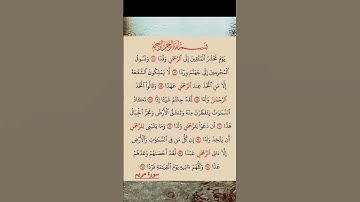 بسم الله الرحمن الرحيم
يَوْمَ نَحْشُرُ ٱلْمُتَّقِينَ إِلَى ٱلرَّحْمَٰنِ وَفْدًا ۝ وَنَسُوقُ
ٱلْمُجْرِمِينَ إِلَىٰ جَهَنَّمَ وِرْدًا ۝ لَّا يَمْلِكُونَ ٱلشَّفَٰعَةَ
إِلَّا مَنِ ٱتَّخَذَ عِندَ ٱلرَّحْمَٰنِ عَهْدًا ۝ وَقَالُوا۟ ٱتَّخَذَ
ٱلرَّحْمَٰنُ وَلَدًا ۝ لَّقَدْ جِئْتُمْ شَيْـًٔا إِدًّا ۝ تَكَادُ
ٱلسَّمَٰوَٰتُ يَتَفَطَّرْنَ مِنْهُ وَتَنشَقُّ ٱلْأَرْضُ وَتَخِرُّ ٱلْجِبَالُ
هَدًّا ۝ أَن دَعَوْا۟ لِلرَّحْمَٰنِ وَلَدًا ۝ وَمَا يَنۢبَغِى لِلرَّحْمَٰنِ
أَن يَتَّخِذَ وَلَدًا ۝ إِن كُلُّ مَن فِى ٱلسَّمَٰوَٰتِ وَٱلْأَرْضِ
إِلَّآ ءَاتِى ٱلرَّحْمَٰنِ عَبْدًا ۝ لَّقَدْ أَحْصَىٰهُمْ وَعَدَّهُمْ
عَدًّا ۝ وَكُلُّهُمْ ءَاتِيهِ يَوْمَ ٱلْقِيَٰمَةِ فَرْدًا ۝
سورة مريم